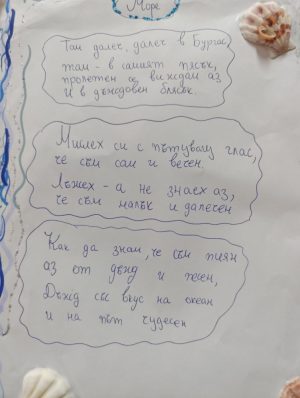 Море
Там далеч, далеч в Бургас,
там - в самият пясък,
пролетен се виждам аз
и в дъждовен блясък.
Мислех си с пътуващ глас,
че съм сам и вечен.
Лъжех - а не знаех аз,
че съм малък и далечен
Как да знам, че съм пиян
аз от дъжд и песен,
Дъжд със вкус на океан
и на път чудесен